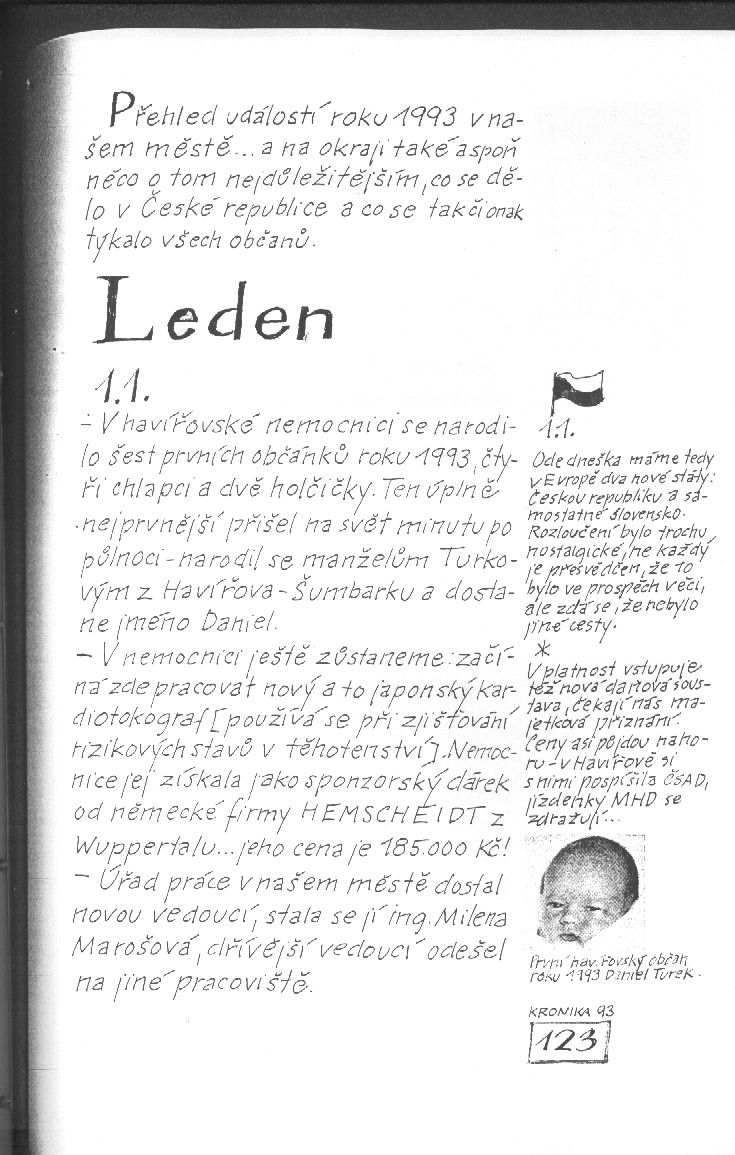 Přehled událostí roku 1993 v na-
šem městě... a na okraji také aspoň
něco o tom nejdůležitějším, co se dě-
lo v České republice a co se tak či onak
týkalo všech občanů.
Leden
1.1.
- V havířovské nemocnici se narodi-
lo šest prvních občánků roku 1993, čty-
ři chlapci a dvě holčičky. Ten úplně
nejprvnější přišel na svět minutu po
půlnoci - narodil se manželům Turko-
vým z Havířova - Šumbarku a dosta-
ne jméno Daniel.
- V nemocnici ještě zůstaneme: začí-
ná zde pracovat nový a to japonský kar-
diotokograf [používá se při zjišťování
rizikových stavů v těhotenství]. Nemoc-
nice jej získala jako sponzorský dárek
od německé firmy HEMSCHEIDT z
Wuppertalu... jeho cena je 185.000 Kč!
- Úřad práce v našem městě dostal
novou vedoucí, stala se jí ing. Milena
Marošová, dřívější vedoucí odešel
na jiné pracoviště.
1.1.
Ode dneška máme tedy
v Evropě dva nové státy:
Českou republiku a sa-
mostatné Slovensko.
Rozloučení bylo trochu
nostalgické, ne každý
je přesvědčen, že to
bylo ve prospěch věci,
ale zdá se, že nebylo
jiné cesty.
*
V platnost vstupuje
též nová daňová sous-
tava, čekají nás ma-
jetková přiznání.
Ceny asi půjdou naho-
ru - v Havířově si
s nimi pospíšila ČSAD,
jízdenky MHD se
zdražují...
První havířovský občan
roku 1993 Daniel Turek.
KRONIKA 93
123